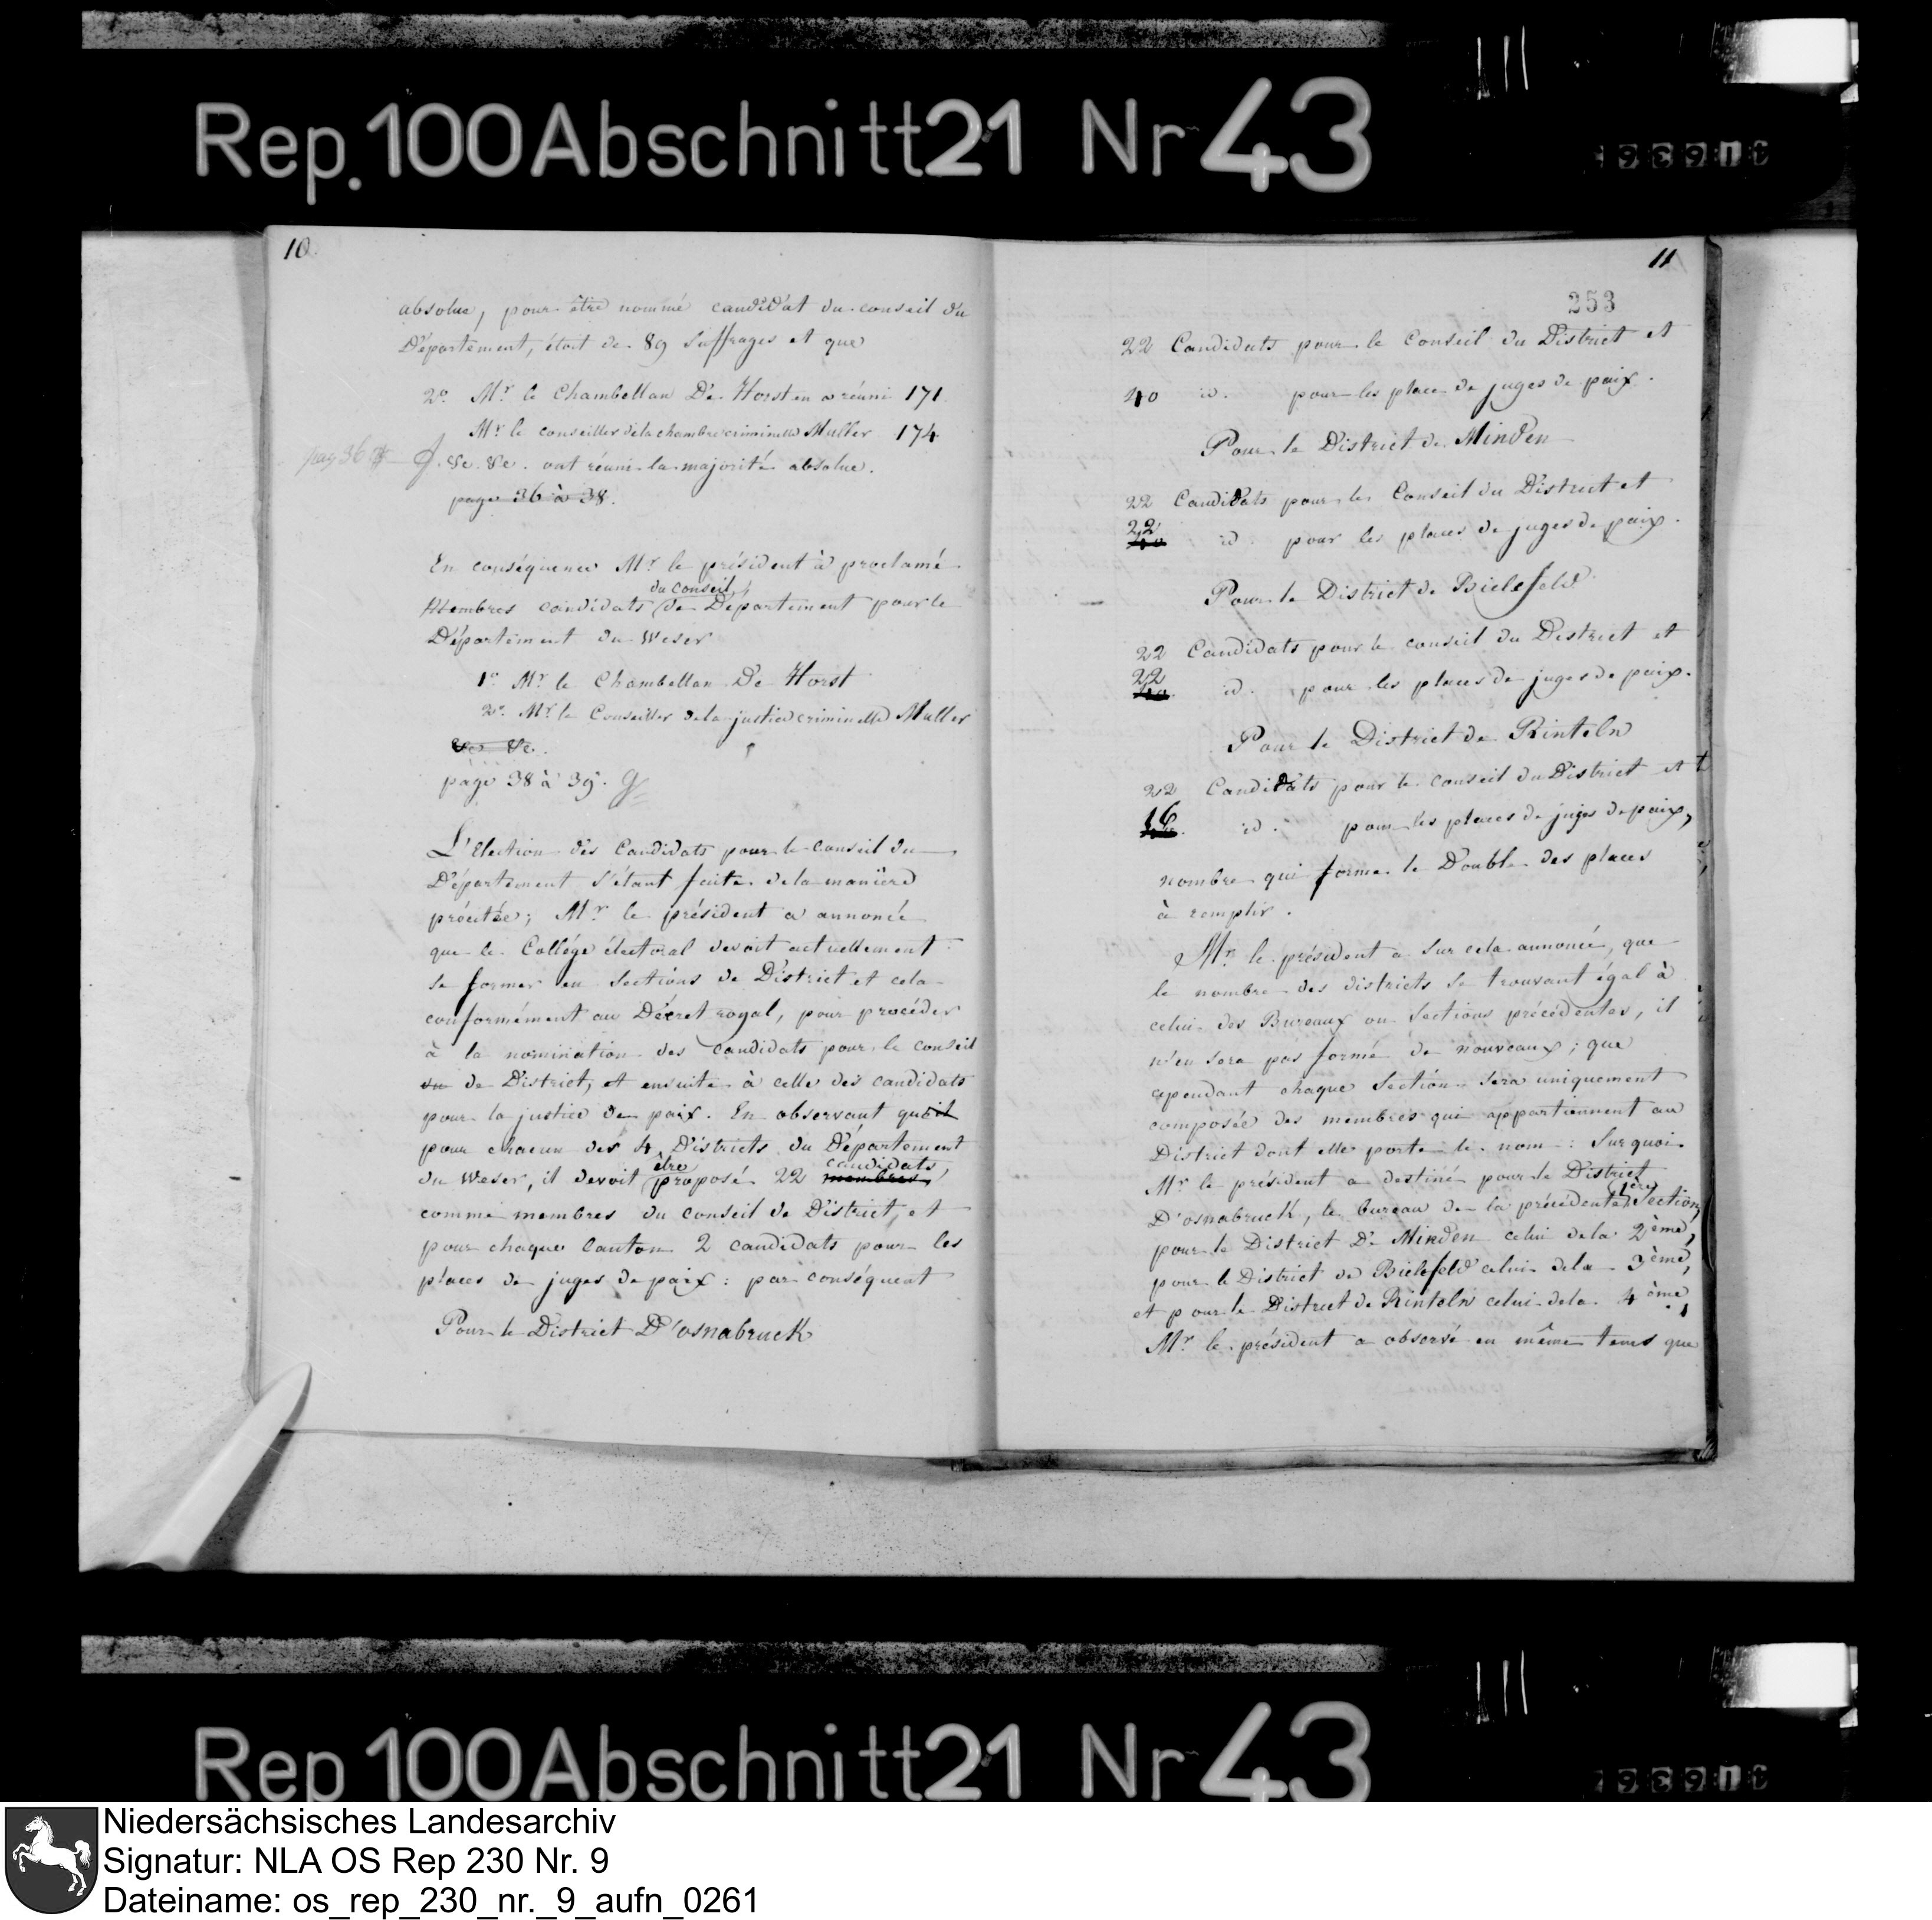 Rep. 100 Abschnitt 21 Nr 43
10
absolue, pour être nommé candidat du conseil du
Département, étoit de 89 Suffrages et que
2º Mr le Chambellan De Horsten a réuni 171
Mr le conseiller de la chambre criminelle Muller 174
pag 36
&c. &c. ont réuni la majorité absolue.
page 36 à 38.
En conséquence Mr le président à proclamé
du conseil
Membres candidats de Département pour le
Département du Weser
1º Mr le Chambellan De Horst
2º Mr le Conseiller de la justice criminelle Muller
&c &c.
page 38 à 39.
L'Election des Candidats pour le conseil du
Département s'étant faite de la manière
précitée; Mr le président a annoncée
que le Collége électoral devoit actuellement
se former en Sections de District et cela
conformément au Décret royal, pour procéder
à la nomination des candidats pour le conseil
du de District, et ensuite à celle des candidats
pour la justice de paix. En observant qu'il
pour chacun des 4 Districts du Département
être candidats,
du Weser, il devoit proposé 22 membres,
comme membres du conseil de District, et
pour chaque Canton 2 candidats pour les
places de juges de paix: par conséquent
Pour le District D'osnabruck
11
253
22 Candidats pour le Conseil du District et
40 id. pour les place de juges de paix.
Pour le District de Minden
22 Candidats pour le Conseil du District et
22
40 id. pour les places de juges de paix.
Pour le District de Bielefeld
22 Candidats pour le conseil du District et
22
40. id. pour les places de juges de paix.
Pour le District de Rinteln
22 Candidats pour le conseil du District et
16
id. pour les places de juges de paix,
nombre qui forme le Double des places
à remplir.
Mr le président a sur cela annoncé, que
le nombre des districts se trouvant égal à
celui des Bureaux ou Sections précédentes, il
n'en sera pas formé de nouveaux; que
cependant chaque Section sera uniquement
composée des membres qui appartiennent au
District dont elle porte le nom: Sur quoi
Mr le président a destiné pour le District
1ère
D'osnabruck, le bureau de la précédente Section,
pour le District De Minden celui de la 2ème,
pour le District de Bielefeld celui de la 3ème,
et pour le District de Rinteln celui de la 4ème.
Mr le président a observé en même tems que
Rep 100 Abschnitt 21 Nr 43
Niedersächsisches Landesarchiv
Signatur: NLA OS Rep 230 Nr. 9
Dateiname: os_rep_230_nr._9_aufn_0261